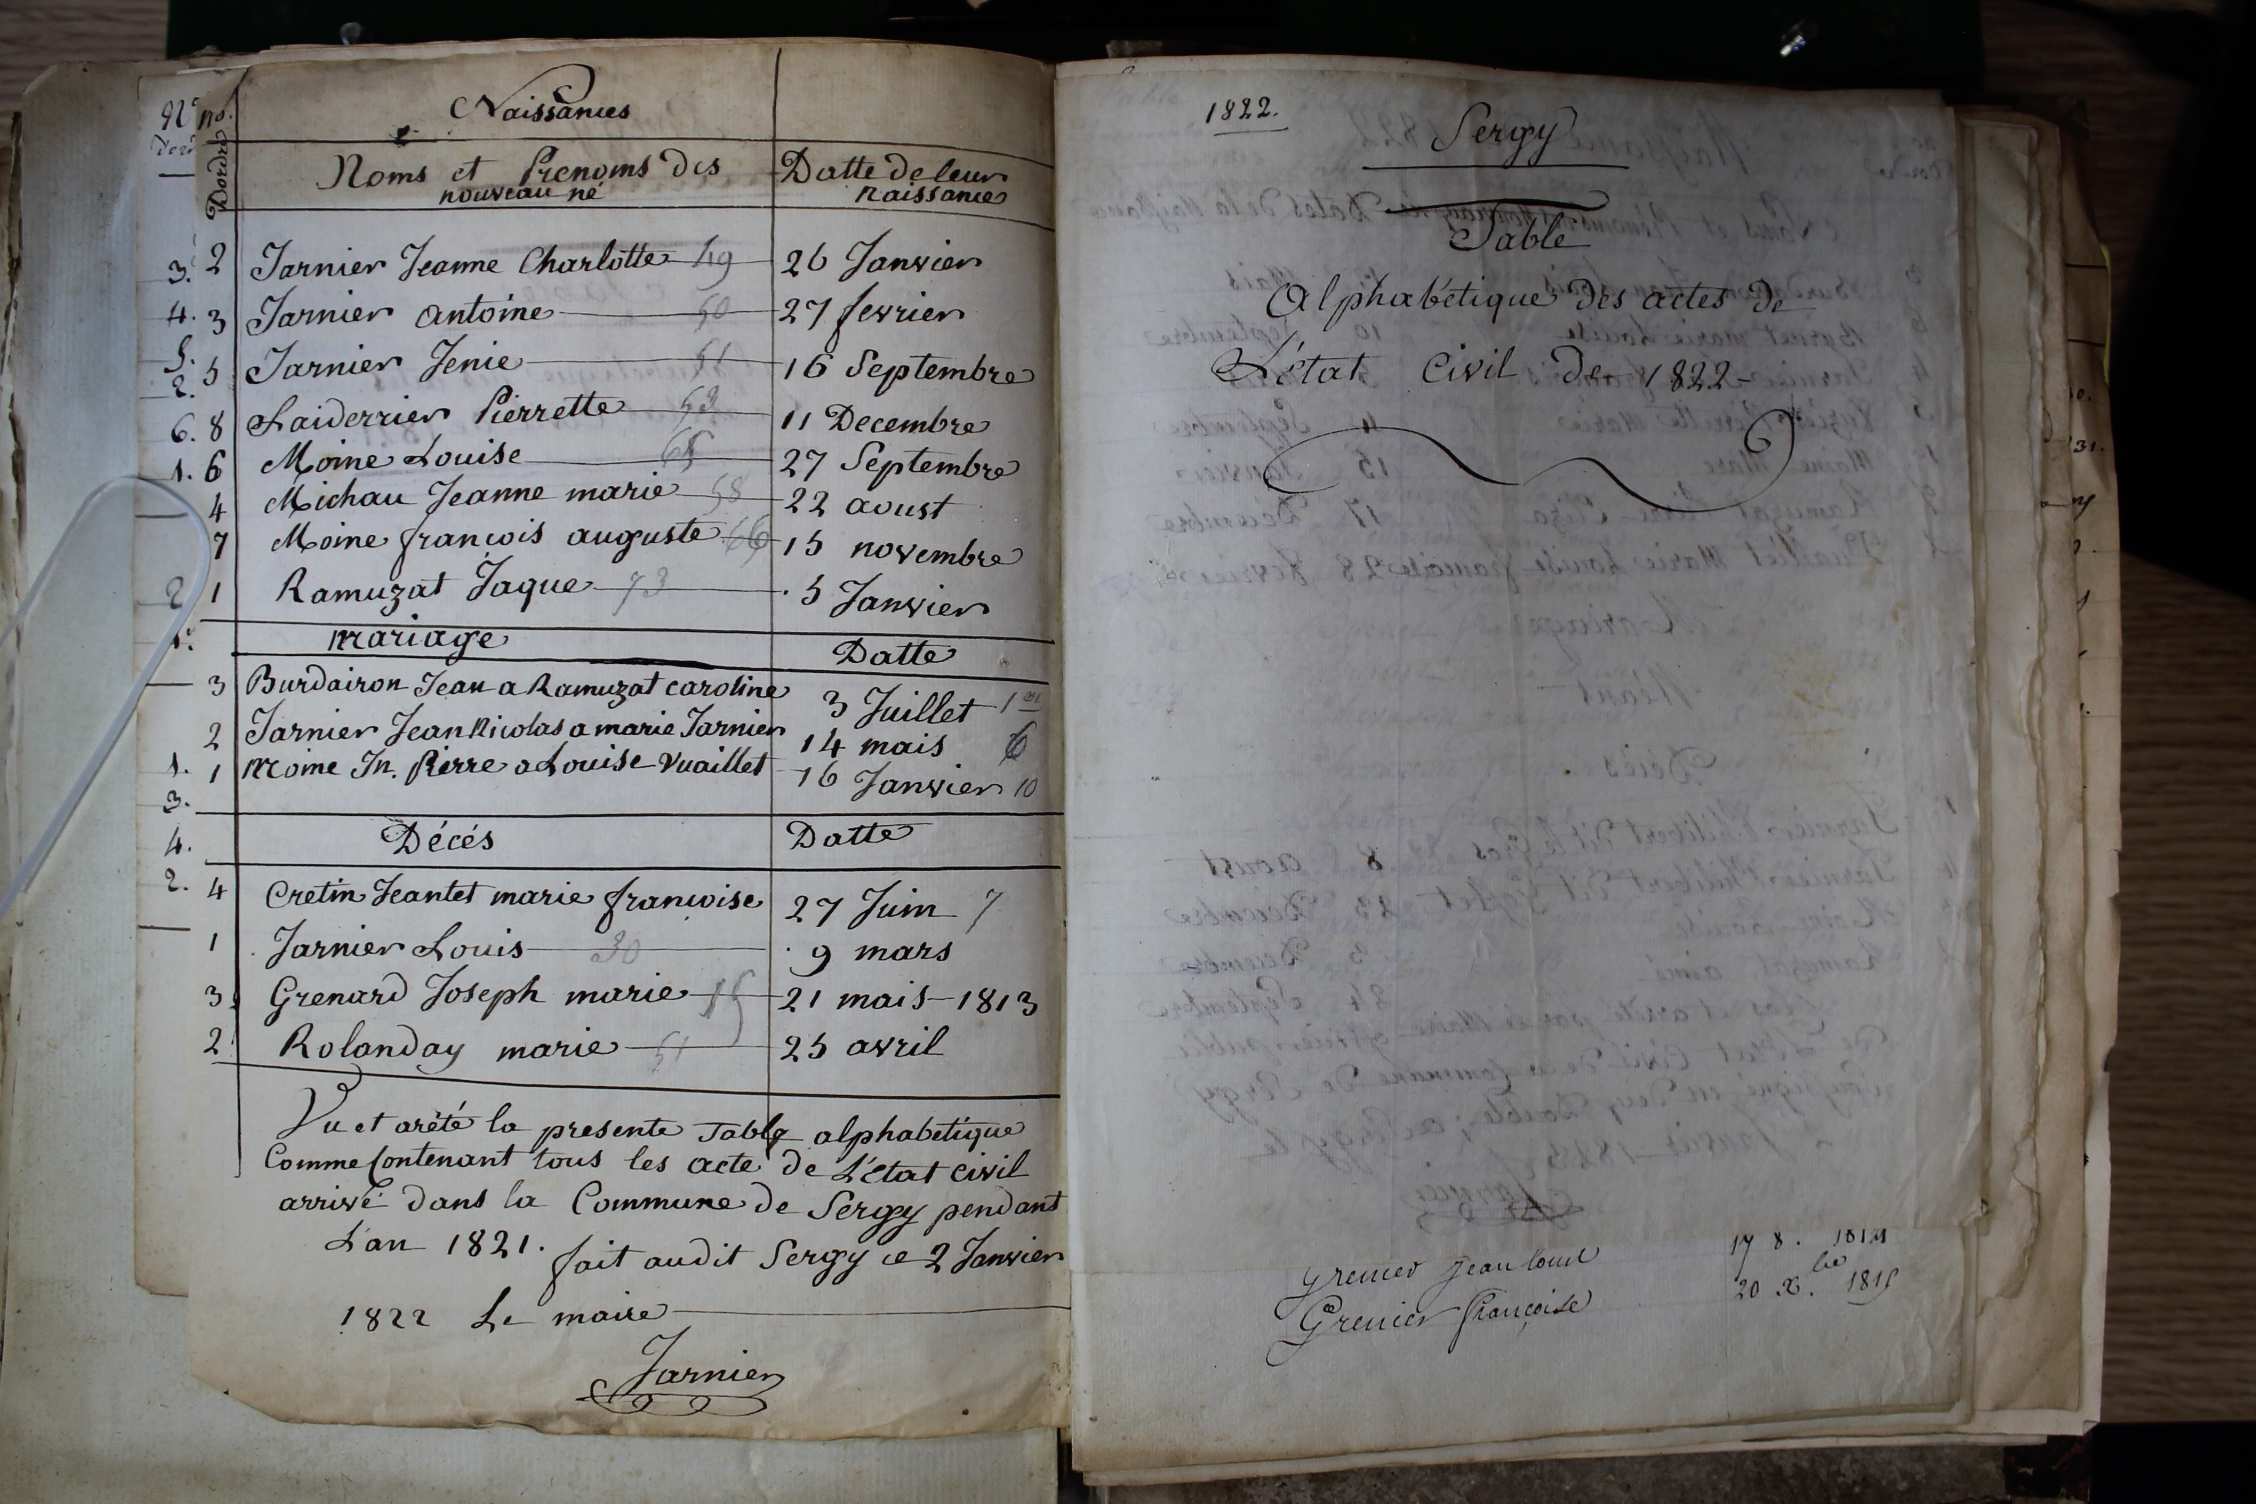 no.
Dordre
Naissances
Noms et Prenoms des
nouveau né
Datte de leur
naissance
2 Jarnier Jeanne Charlotte 49 26 Janvier
3 Jarnier antoine 50 27 fevrier
5 Jarnier Jenie 51 16 Septembre
8 Laiderrier Pierrette 53 11 Decembre
6 Moine Louise 65 27 Septembre
4 Michau Jeanne marie 58 22 aoust
7 Moine francois auguste 66 15 novembre
1 Ramuzat Jaque 73 5 Janvier
mariage Datte
3 Burdairon Jean a Ramuzat caroline 3 Juillet
2 Jarnier Jean Nicolas a marie Jarnier 14 mais 6
1 Moine Jn. Pierre a Louise Vuaillet 16 Janvier 10
Décés Datte
4 Cretin Jeantet marie francoise 27 Juin 7
1 Jarnier Louis 30 9 mars
3 Grenard Joseph marie 21 mais 1813
2 Rolanday marie 51 25 avril
Vu et arèté la presente Table alphabetique
Comme Contenant tous les acte de L'état civil
arrivé dans la Commune de Sergy pendant
L'an 1821. fait audit Sergy ce 2 Janvier
1822 Le maire
Jarnier
3.
4.
5.
2.
6.
1.
2
1.
1.
3.
4.
2.
1822.
Sergy
Table
Alphabétique des actes de
L'état Civil de 1822
Grenier Jean louis 17 8.
Grenier françoise 20 X. bre 1815